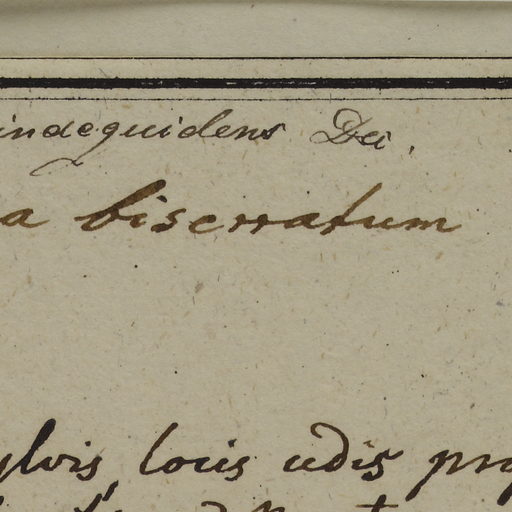 inaequidens Dei.
a biserratum
ylvis, locis udis pro